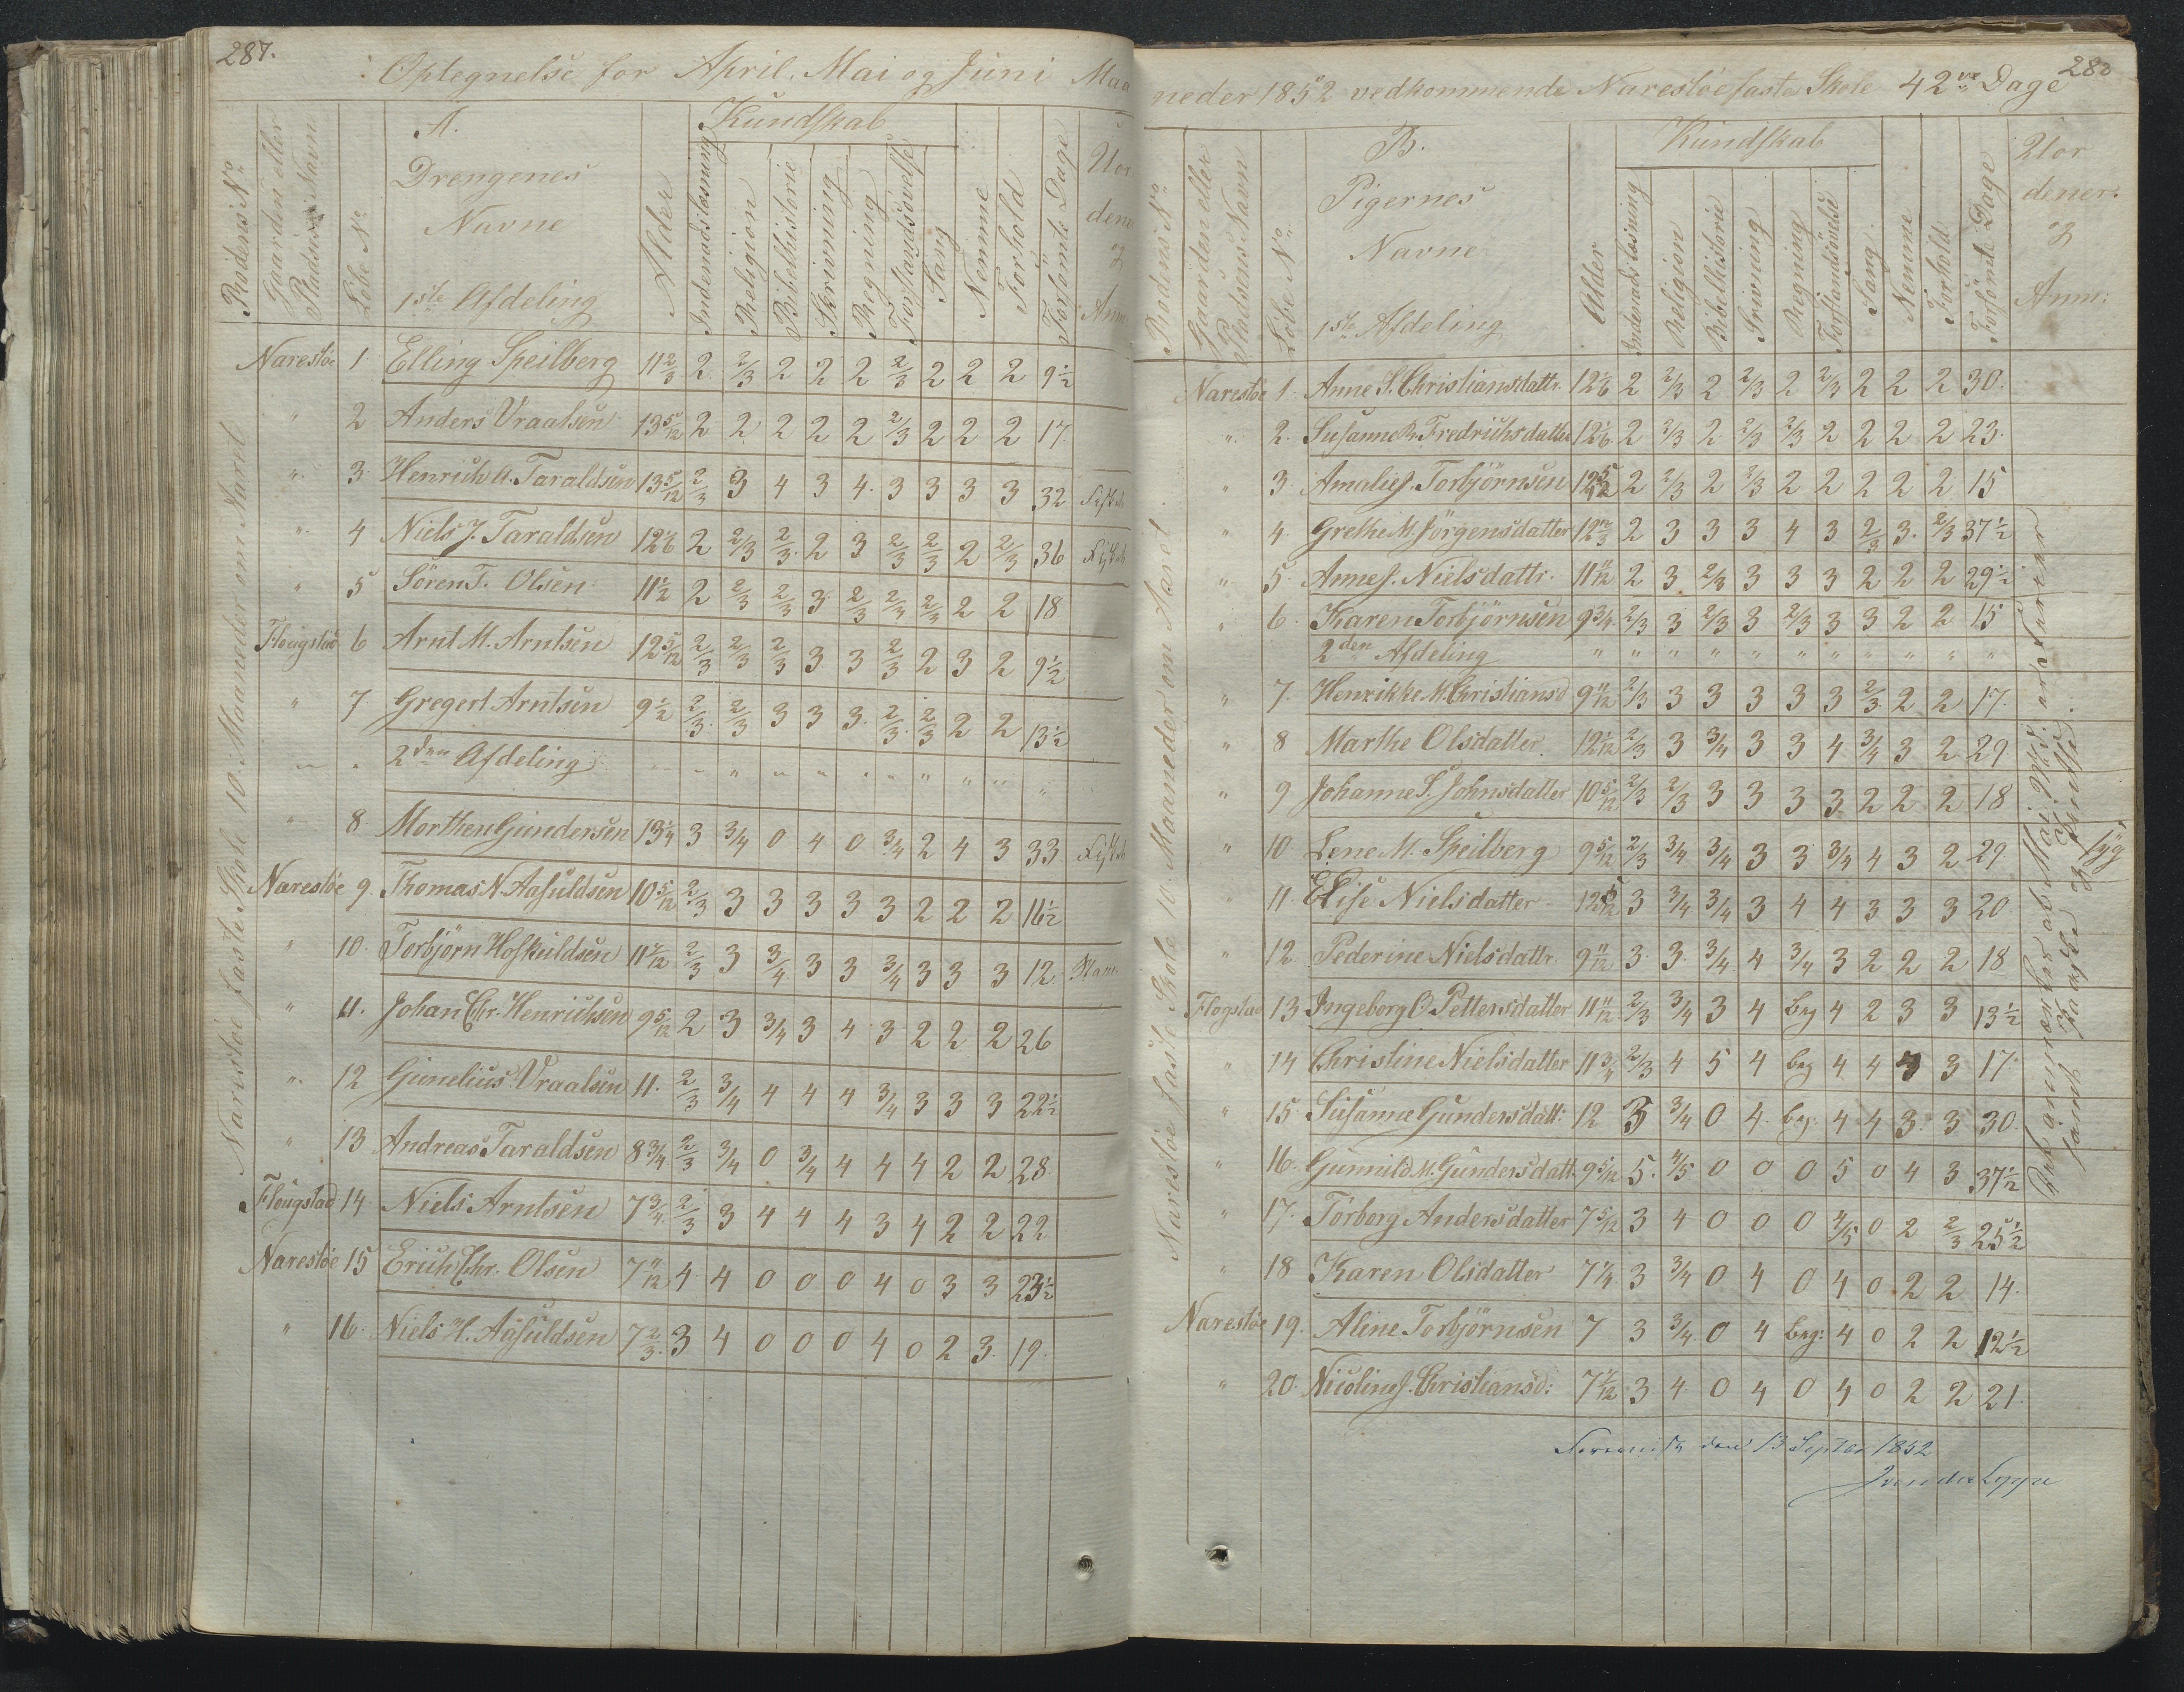 287.
Optegnelse for April, Mai og Juni Maa
Rodens No
Gaarden eller Pladsens Navn
Löbe No
A.
Drengenes
Navne
1ste Afdeling
Alder
Kundskab
Indenadslæsning
Religion
Bibelhistorie
Skrivning
Regning
Forstandsøvelse
Sang
Nemme
Forhold
Forsömte Dage
Uor
dene
og
Anm
Narestöe faste Skole 10 Maaneder om Aaret
Narestöe 1. Elling Speilberg 11 2/3 2 2/3 2 2 2 2/3 2 2 2 9 1/2
" 2 Anders Vraalsen 13 5/12 2 2 2 2 2 2/3 2 2 2 17
" 3. Henrich A. Taraldsen 13 5/12 2/3 3 4 3 4. 3 3 3 3 32
" 4 Niels J. Taraldsen 12 1/6 2 2/3 2/3 2 3 2/3 2/3 2 2/3 36
" 5 Sören T. Olsen 11 1/2 2 2/3 2/3 3 2/3 2/3 2/3 2 2 18
Flougstad 6 Arnt M. Arntsen 12 5/12 2/3 2/3 2/3 3 3 2/3 2 3 2 9 1/2
" 7 Gregert Arntsen 9 1/2 2/3 2/3 3 3 3. 2/3 2/3 2 2 13 1/2
2den Afdeling
" 8 Morthen Gundersen 13 1/4 3 3/4 0 4 0 3/4 2 4 3 33
Narestöe 9. Thomas N. Aasuldsen 10 5/12 2/3 3 3 3 3 3 2 2 2 16 1/2
" 10. Torbjörn Hoskuldsen 11 7/12 2/3 3 3/4 3 3 3/4 3 3 3 12
" 11. Johan Chr. Henrichsen 9 5/12 2 3 3/4 3 4 3 2 2 2 26
" 12 Gunelius Vraalsen 11. 2/3 3/4 4 4 4 3/4 3 3 3 22 1/2
" 13 Andreas Taraldsen 8 3/4 2/3 3/4 0 3/4 4 4 4 2 2 28.
Flougstad 14 Niels Arntsen 7 3/4 2/3 3 4 4 4 3 4 2 2 22
Narestöe 15 Erich Chr. Olsen 7 11/12 4 4 0 0 0 4 0 3 3 23 1/2
" 16. Niels H. Aasuldsen 7 2/3. 3 4 0 0 0 4 0 2 3. 19.
288
neder 1852 vedkommende Narestöe faste Skole 42 Dage
Rodens No
Gaarden eller Pladsens Navn
Löbe No
B.
Pigernes
Navne
1ste Afdeling
Alder
Kundskab
Indenadslæsning
Religion
Bibelhistorie
Srivning
Regning
Forstandsövelse
Sang
Nemme
Forhold
Forsömte Dage
Uor
dener.
og
Anm:
Narestöe faste Skole 10 Maaneder om Aaret
Narestöe 1. Anne S. Christiansdattr. 12 1/6 2 2/3 2 2/3 2 2/3 2 2 2 30.
" 2. Susanne Fredrichsdatter 12 1/6 2 2/3 2 2/3 2/3 2 2 2 2 23.
" 3. Amalie J. Torbjörnsen 12 5/12 2 2/3 2 2/3 2 2 2 2 2 15
" 4. Grethe M. Jörgensdatter 12 2/3 2 3 3 3 4 3 2/3 3. 2/3 37 1/2
" 5. Anne J. Nielsdattr. 11 11/12 2 3 2/3 3 3 3 2 2 2 29 1/2
" 6. Karen Torbjörnsen 9 3/4. 2/3 3 2/3 3 2/3 3 3 2 2 15
2den Afdeling " " " " " " " " " "
" 7. Henrikke M. Christiansd 9 11/12 2/3 3 3 3 3 3 2/3 2 2 17.
" 8 Marthe Olsdatter. 12 1/12 2/3 3 3/4 3 3 4 3/4 3 2 29
" 9 Johanne S. Johnsdatter 10 5/12 2/3 2/3 3 3 3 3 2 2 2 18
" 10. Lene M. Speilberg 9 5/12 2/3 3/4 3/4 3 3 3/4 4 3 2 29.
" 11. Elise Nielsdatter 12 5/12 3 3/4 3/4 3 4 4 3 3 3 20
" 12 Pederine Nielsdattr. 9 11/12 3. 3. 3/4 4 3/4 3 2 2 2 18
Flogstad 13 Ingeborg O. Pettersdatter 11 11/12 2/3 3/4 3 4 beg 4 2 3 3 13 1/2
" 14 Christine Nielsdatter 11 3/4 2/3 4 5 4 beg 4 4 3 3 17.
" 15. Susanne Gundersdatt: 12 3 3/4 0 4. beg. 4 4 3. 3 30.
" 16. Gunnild M. Gundersdatt. 9 5/12 5. 4/5 0 0 0 5 0 4 3 37 1/2
" 17. Torborg Andersdatter 7 5/12 3 4 0 0 0 4/5 0 2 2/3 25 1/2
" 18 Karen Olsdatter 7 1/4 3 3/4 0 4 0 4 0 2 2 14.
Narestöe 19. Aline Torbjörnsen 7 3 3/4. 0 4 beg: 4 0 2 2 12 1/2
" 20. Nicoline J. Christiansd: 7 1/12 3 4 0 4 0 4 0 2 2 21.
den 13 Septbr 1852